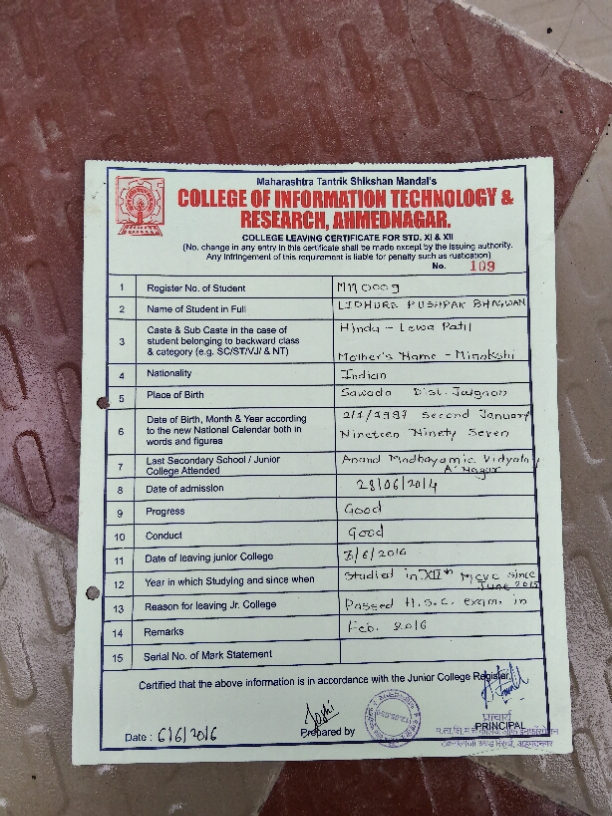 Maharashtra Tantrik Shikshan Mandal's
COLLEGE OF INFORMATION TECHNOLOGY &
RESEARCH, AHMEDNAGAR.
COLLEGE LEAVING CERTIFICATE FOR STD. XI & XII
(No, change in any entry in this certificate shall be made except by the issuing authority.
Any Infringement of this requirement is liable for penalty such as rustication)
No. 109
1 Register No. of Student M110009
2 Name of Student in Full LIDHURE PUSHPAK BHAGWAN
3 Caste & Sub Caste in the case of Hindu - Lewa Patil
student belonging to backward class
& category (e.g. SC/ST/VJ/ & NT) Mother's Name - Minakshi
4 Nationality Indian
5 Place of Birth Sawada Dist. Jalgaon
6 Date of Birth, Month & Year according 2/1/1997 Second January
to the new National Calendar both in Nineteen Ninety Seven
words and figures
7 Last Secondary School / Junior Anand Madhayamic Vidyalay
College Attended A'Nagar
8 Date of admission 28/06/2014
9 Progress Good
10 Conduct Good
11 Date of leaving junior College 3/6/2016
12 Year in which Studying and since when Studied in XIIth MCVC since
June 2015
13 Reason for leaving Jr. College Passed H.S.C. exam. in
14 Remarks Feb. 2016
15 Serial No. of Mark Statement
Certified that the above information is in accordance with the Junior College Register.
प्राचार्य
Date : 6/6/2016 Prepared by PRINCIPAL